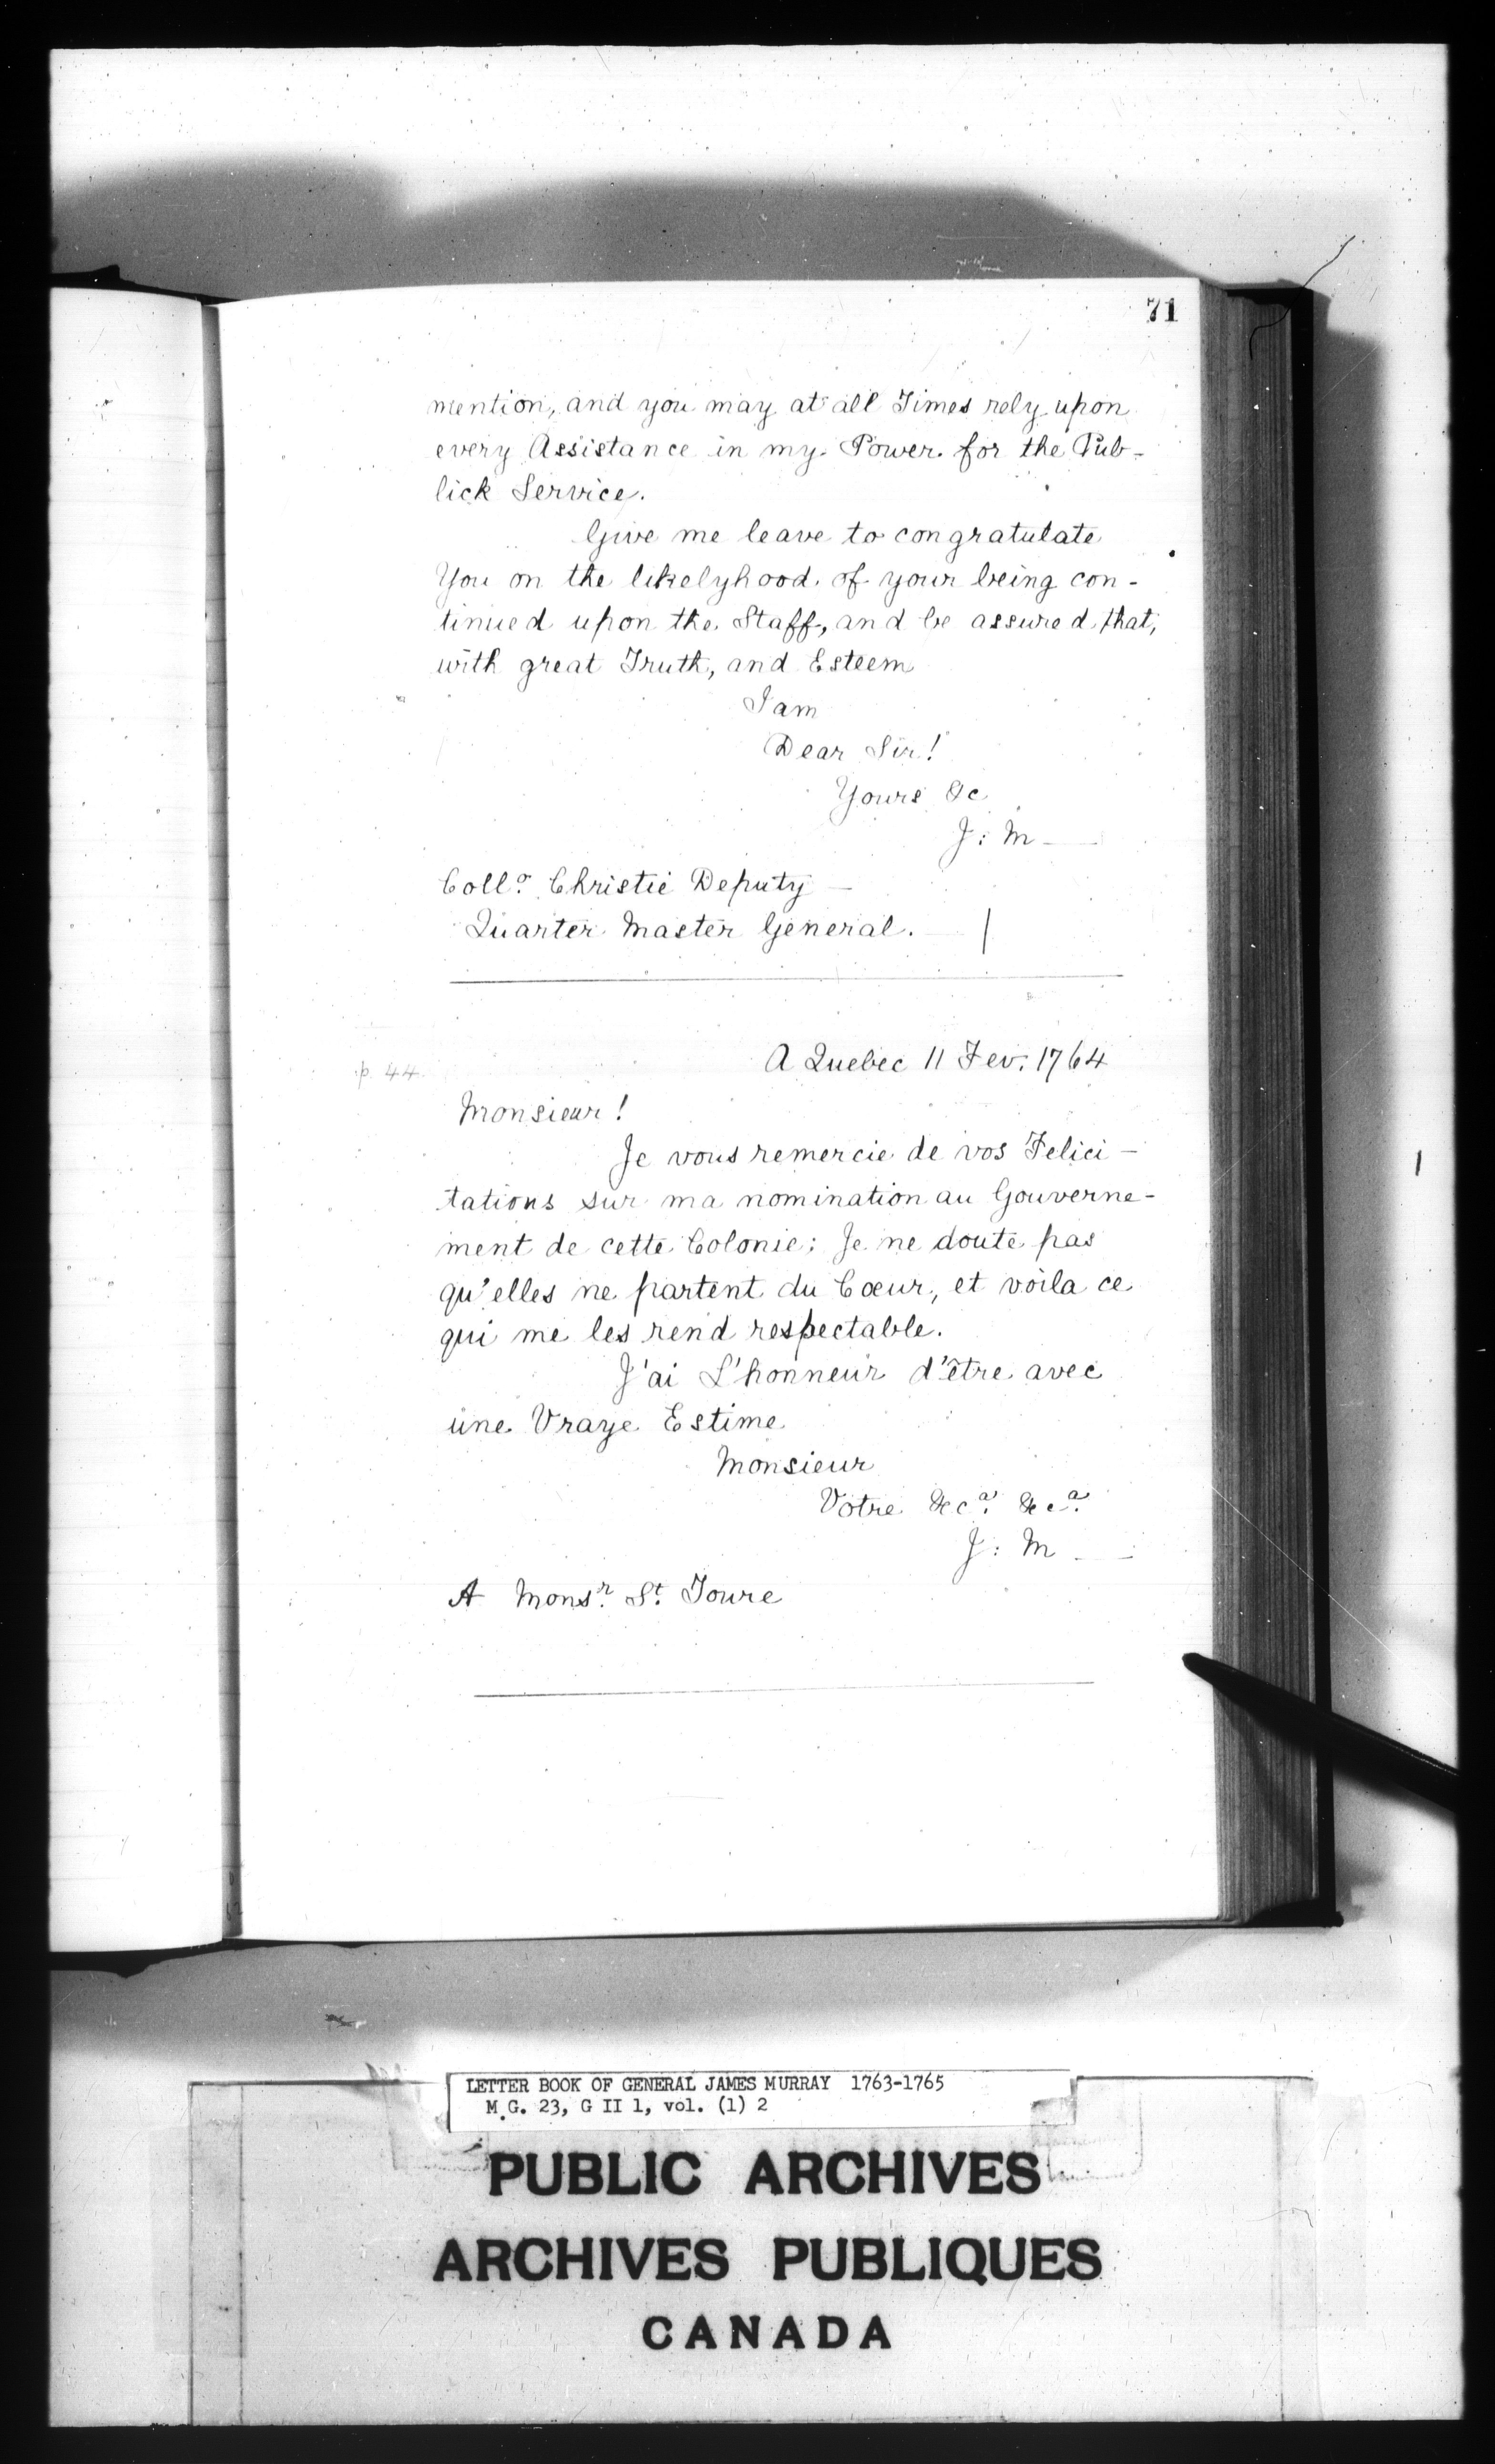 71
mention, and you may at all Times rely upon
every Assistance in my Power for the Pub-
lick Service.
Give me leave to congratulate
You on the likelyhood of your being con-
tinued upon the Staff, and be assured that,
with great Truth, and Esteem
I am
Dear Sir!
Yours &c
J: M
Collo. Christie Deputy —
Quarter Master General.
A Quebec 11 Fev. 1764
p. 44.
Monsieur!
Je vous remercie de vos Felici-
tations sur ma nomination au Gouverne-
ment de cette Colonie; Je ne doute pas
qu'elles ne partent du Cœur, et voila ce
qui me les rend respectable.
J'ai L'honneur d'être avec
une Vraye Estime
Monsieur
Votre &ca. &ca.
J: M
A Monsr. St. Toure
LETTER BOOK OF GENERAL JAMES MURRAY 1763-1765
M.G. 23, G II 1, vol. (1) 2
PUBLIC ARCHIVES
ARCHIVES PUBLIQUES
CANADA